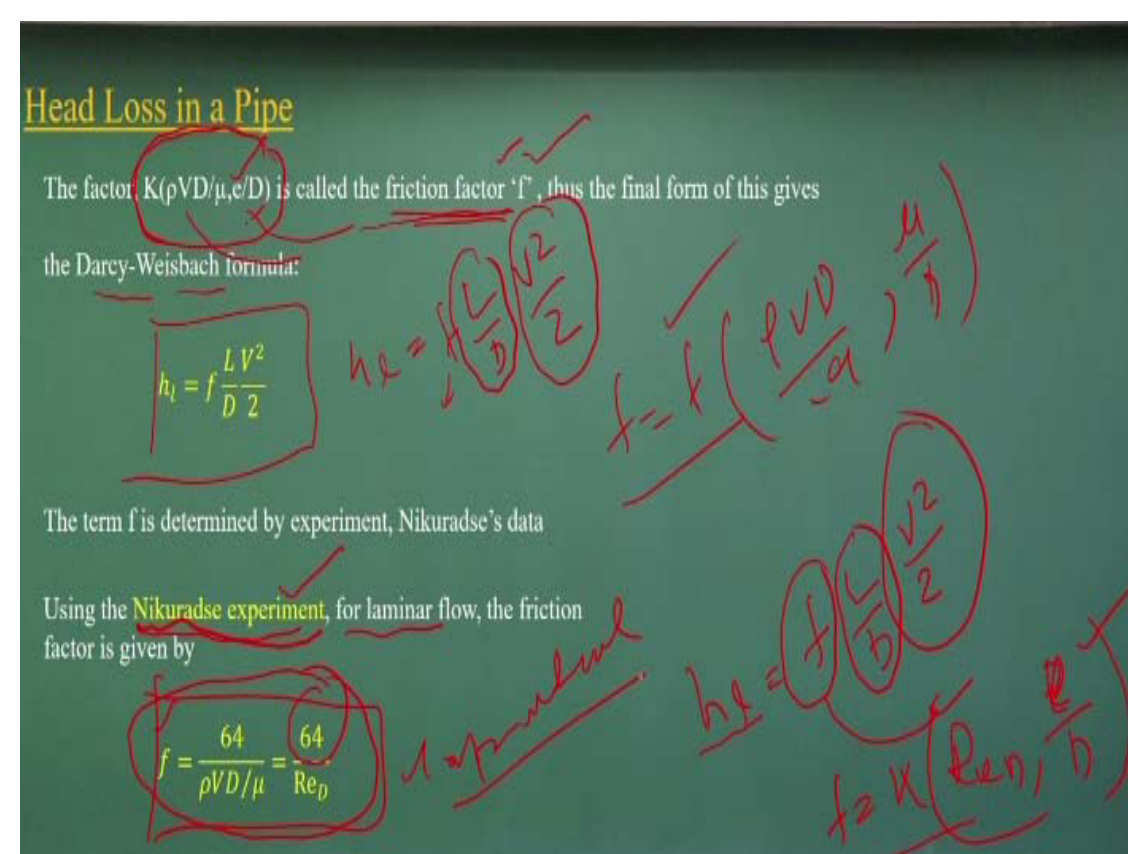 Head Loss in a Pipe
The factor, K(ρVD/μ,e/D) is called the friction factor 'f' , thus the final form of this gives
the Darcy-Weisbach formula:
h_l = f L/D V²/2
h_l = f L/D V²/2
f = f (ρVD/μ, μ/D)
The term f is determined by experiment, Nikuradse's data
Using the Nikuradse experiment, for laminar flow, the friction
factor is given by
f = 64/(ρVD/μ) = 64/Re_D
h_l = f L/D V²/2
f = K (Re_D, e/D)